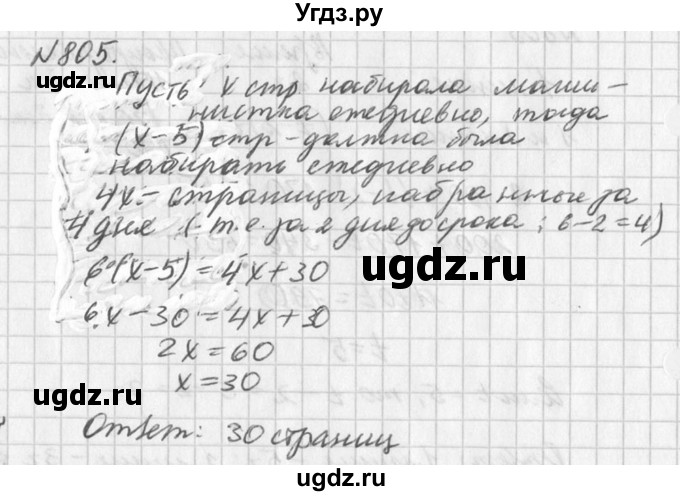 Угдз.ру
№805.
Пусть x стр. набирала маши-
нистка ежедневно, тогда
(x-5) стр - должна была
набирать ежедневно
4x - страницы, набранные за
4 дня (т.е. за 2 дня до срока; 6-2=4)
6·(x-5)=4x+30
6x-30=4x+30
2x=60
x=30
Ответ: 30 страниц
ugdz.ru
ugdz.ru
ugdz.ru
ugdz.ru
ugdz.ru
ugdz.ru
ugdz.ru